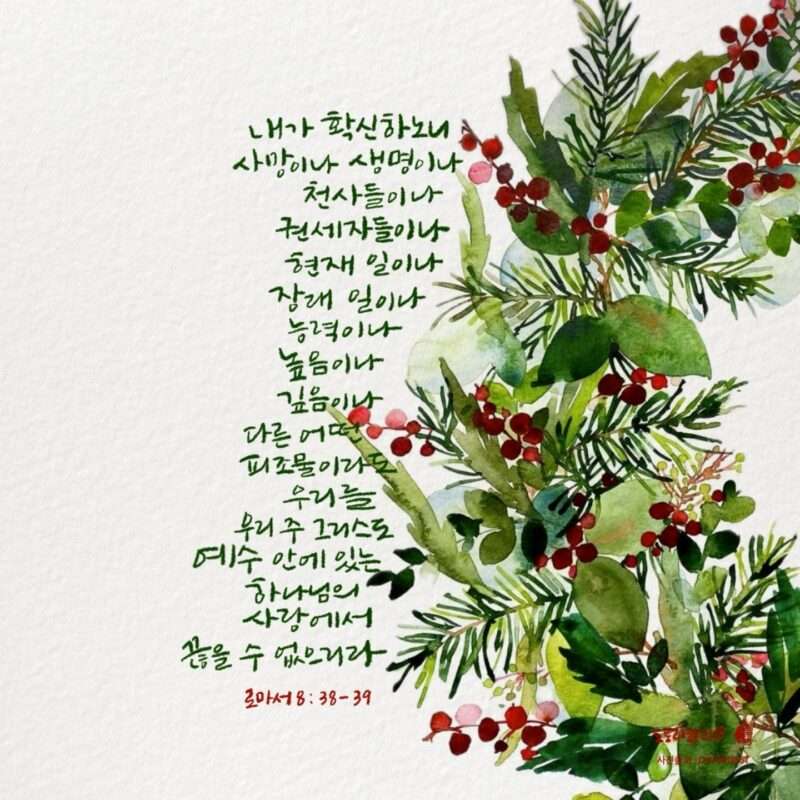 내가 확신하노니
사망이나 생명이나
천사들이나
권세자들이나
현재 일이나
장래 일이나
능력이나
높음이나
깊음이나
다른 어떤
피조물이라도
우리를
우리 주 그리스도
예수 안에 있는
하나님의
사랑에서
끊을 수 없으리라
로마서 8:38-39